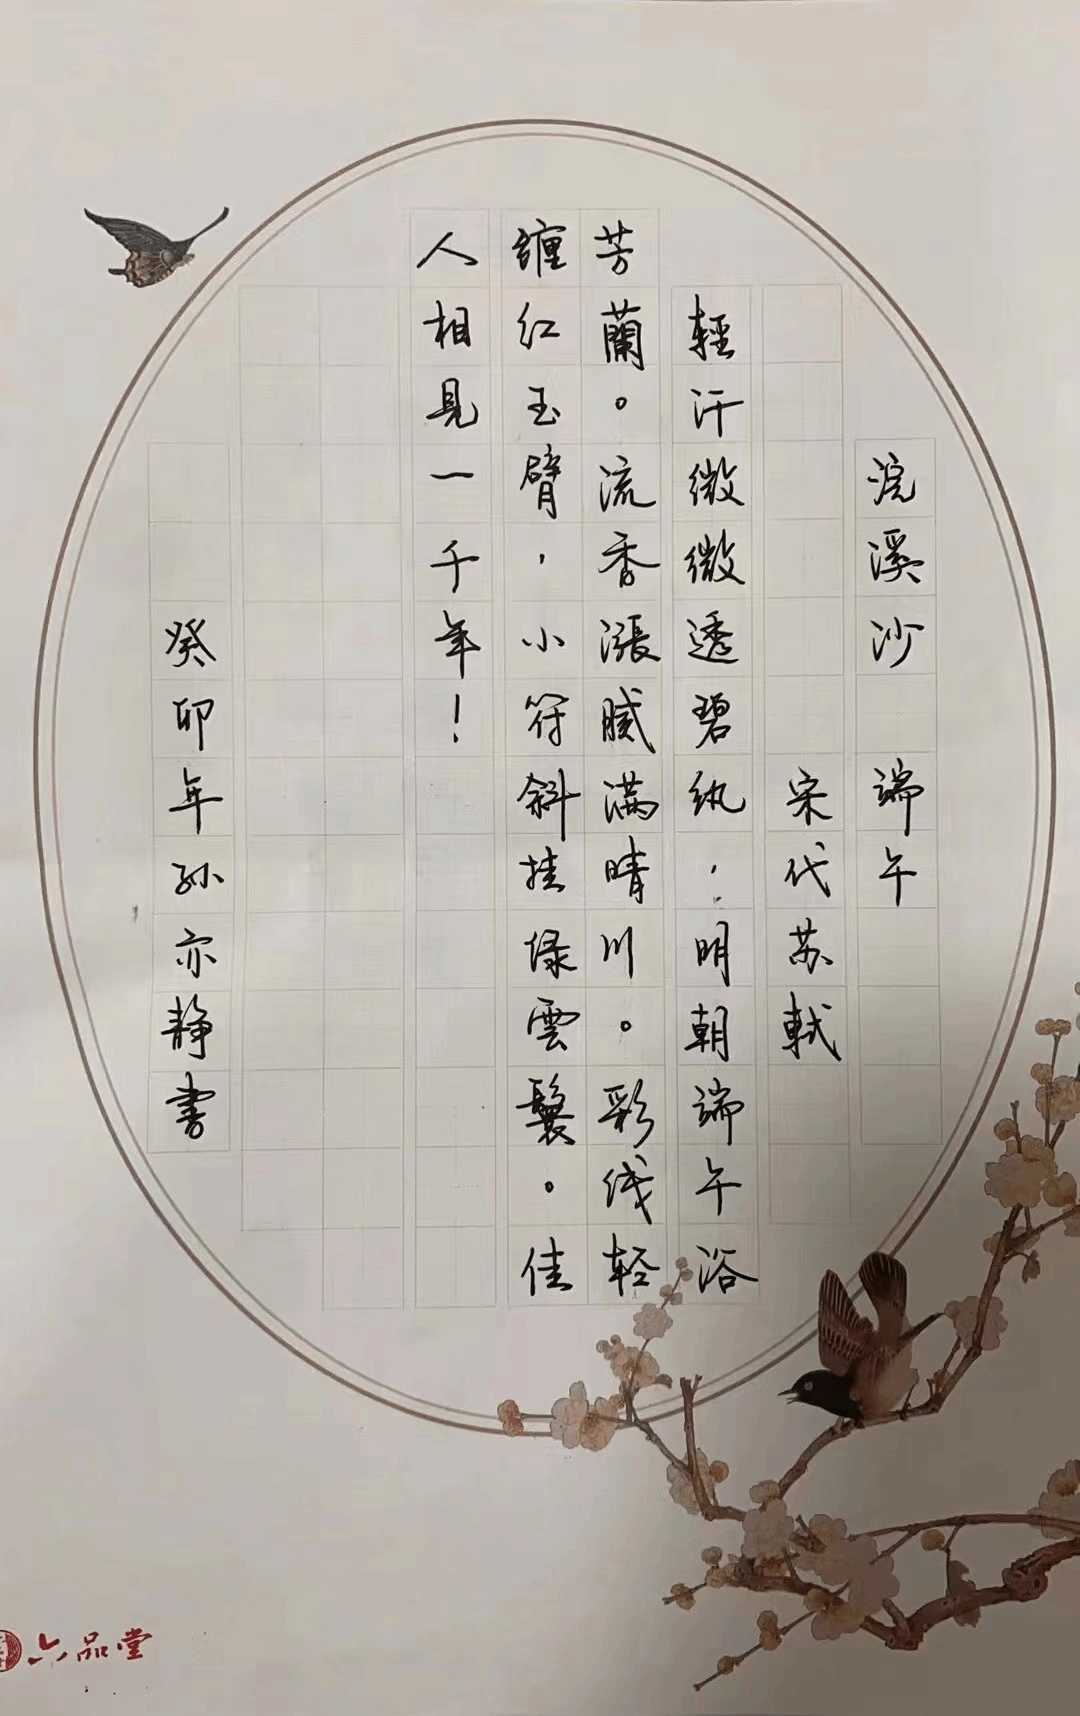 浣溪沙 端午
宋代苏轼
輕汗微微透碧纨，明朝端午浴
芳蘭。流香漲膩满晴川。彩线轻
缠红玉臂，小符斜挂绿雲鬟。佳
人相見一千年！
癸卯年孙亦静书
六品堂